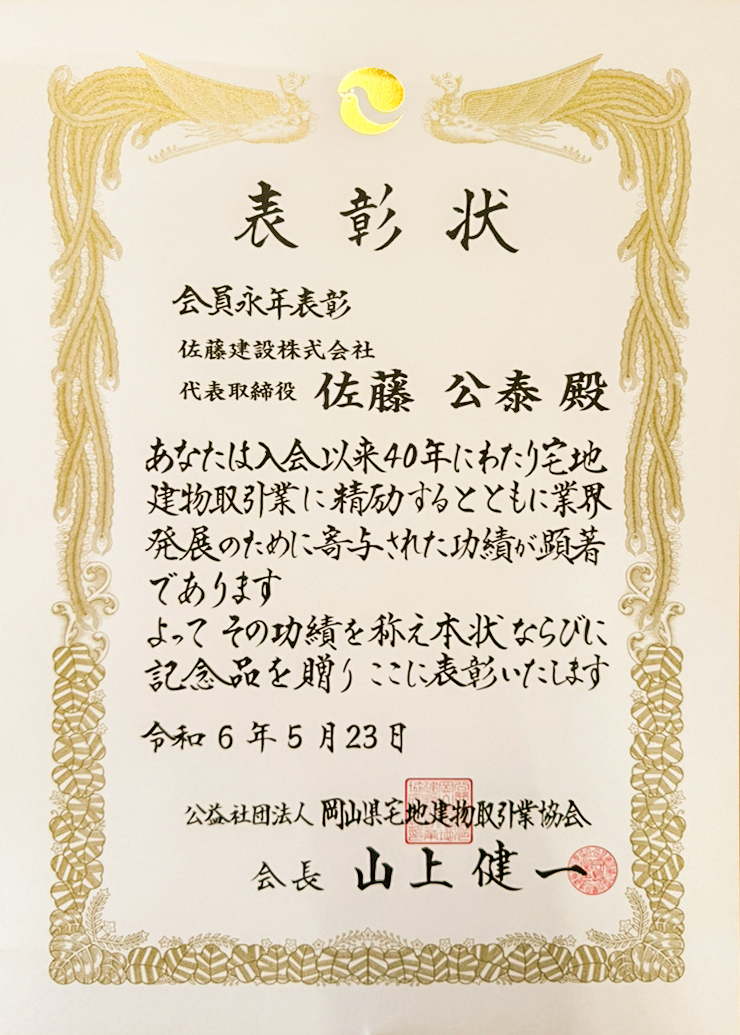 表彰状
会員永年表彰
佐藤建設株式会社
代表取締役 佐藤 公泰 殿
あなたは入会以来40年にわたり宅地
建物取引業に精励するとともに業界
発展のために寄与された功績が顕著
であります
よって その功績を称え本状ならびに
記念品を贈り ここに表彰いたします
令和6年5月23日
公益社団法人 岡山県宅地建物取引業協会
会長 山上健一